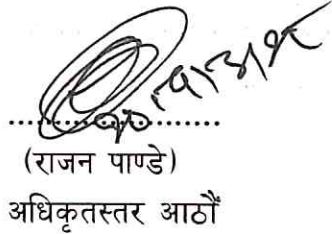 ....................
(राजन पाण्डे)
अधिकृतस्तर आठौं